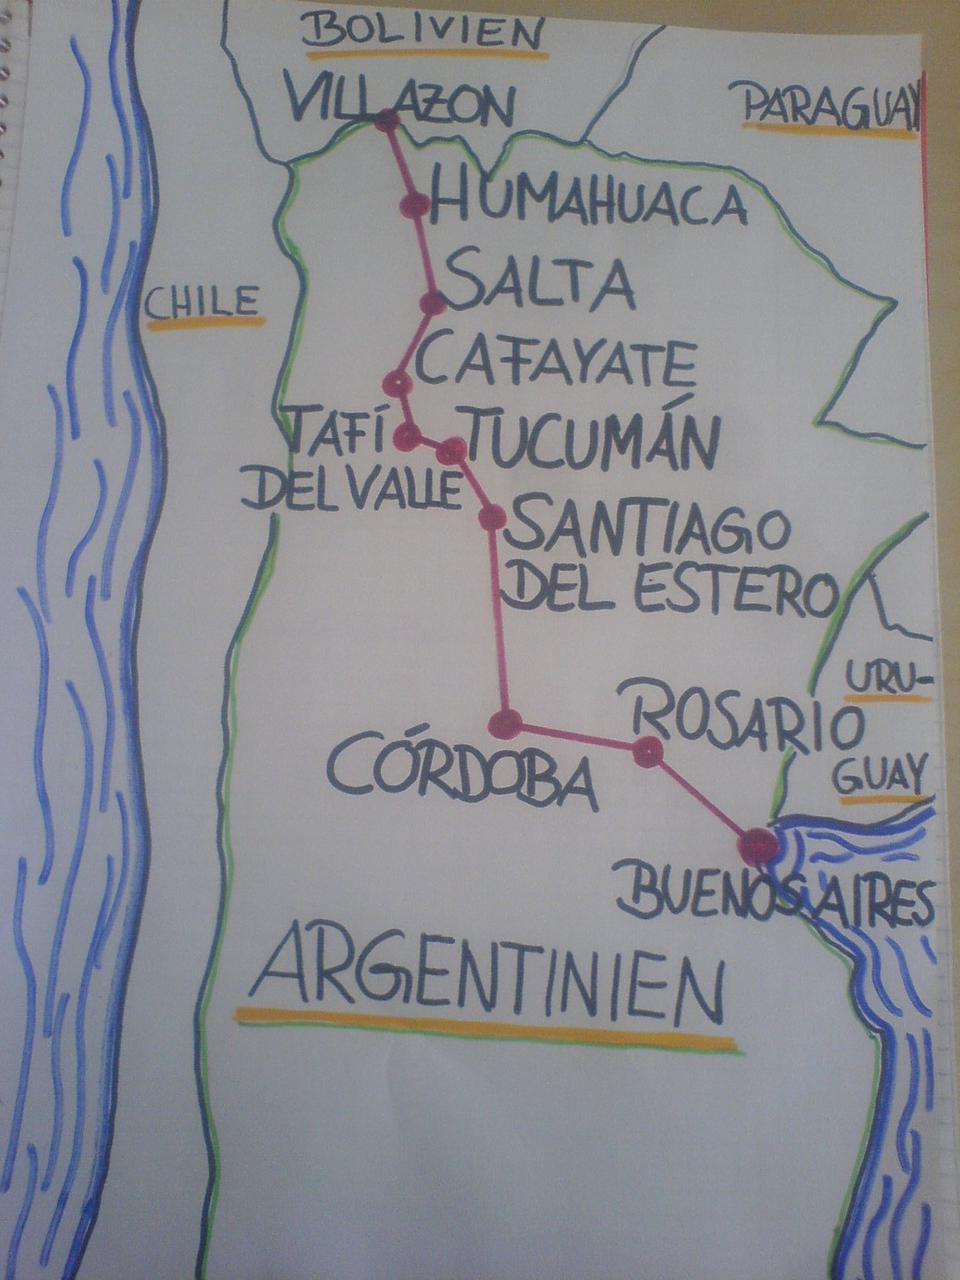 BOLIVIEN
VILLAZON
PARAGUAY
HUMAHUACA
SALTA
CHILE
CAFAYATE
TAFÍ
DEL VALLE
TUCUMÁN
SANTIAGO
DEL ESTERO
URU-
GUAY
ROSARIO
CÓRDOBA
BUENOS AIRES
ARGENTINIEN